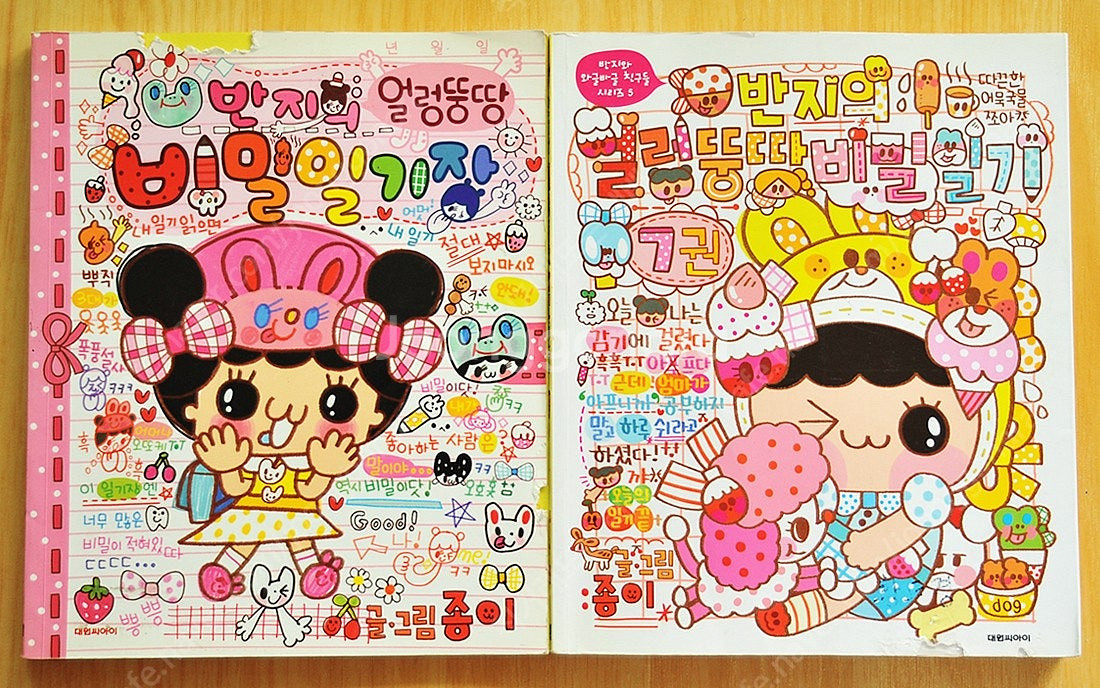 년 월 일
반지의
얼렁뚱땅
비밀일기장
내 일기 읽으면
어머!
내 일기
절대
보지마시오
뿌직
3대가
안돼!
읏읏읏
폭풍설사
ㅋㅋ
비밀이다!
ㅋㅋ
흑
어머나
오또케 T.T
흑
좋아하는 사람은
말이야...
ㅋㅋ
역시 비밀이닷!
오호홋
이 일기장엔
너무 많은
비밀이 적혀있따
ㄷㄷㄷㄷ...
Good!
나!
me!
ㅋㅋ
뿅 뿅
글·그림 종이
대원씨아이
반지와
와글바글 친구들
시리즈 5
반지의
얼렁뚱땅 비밀일기
따끈한
어묵국물
쪼아캬
7권
오늘 나는
감기에 걸렸다
흑흑 T.T 아프다
T.T 근데! 엄마가
아프니까 공부하지
말고 하루 쉬라고
하셨다!
꺄
오늘의
일기 끝
글·그림
종이
dog
대원씨아이